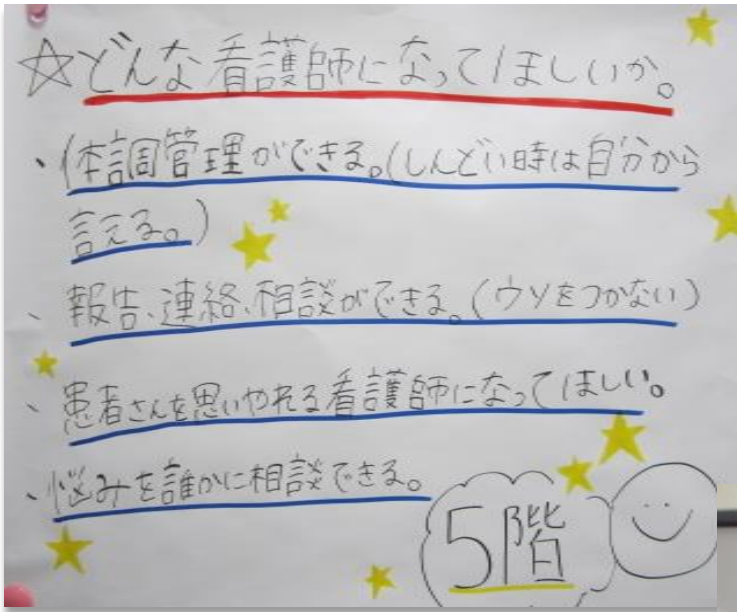 ☆どんな看護師になってほしいか。
・体調管理ができる。(しんどい時は自分から
言える。)
・報告、連絡、相談ができる。(ウソをつかない)
・患者さんを思いやれる看護師になってほしい。
・悩みを誰かに相談できる。
5階